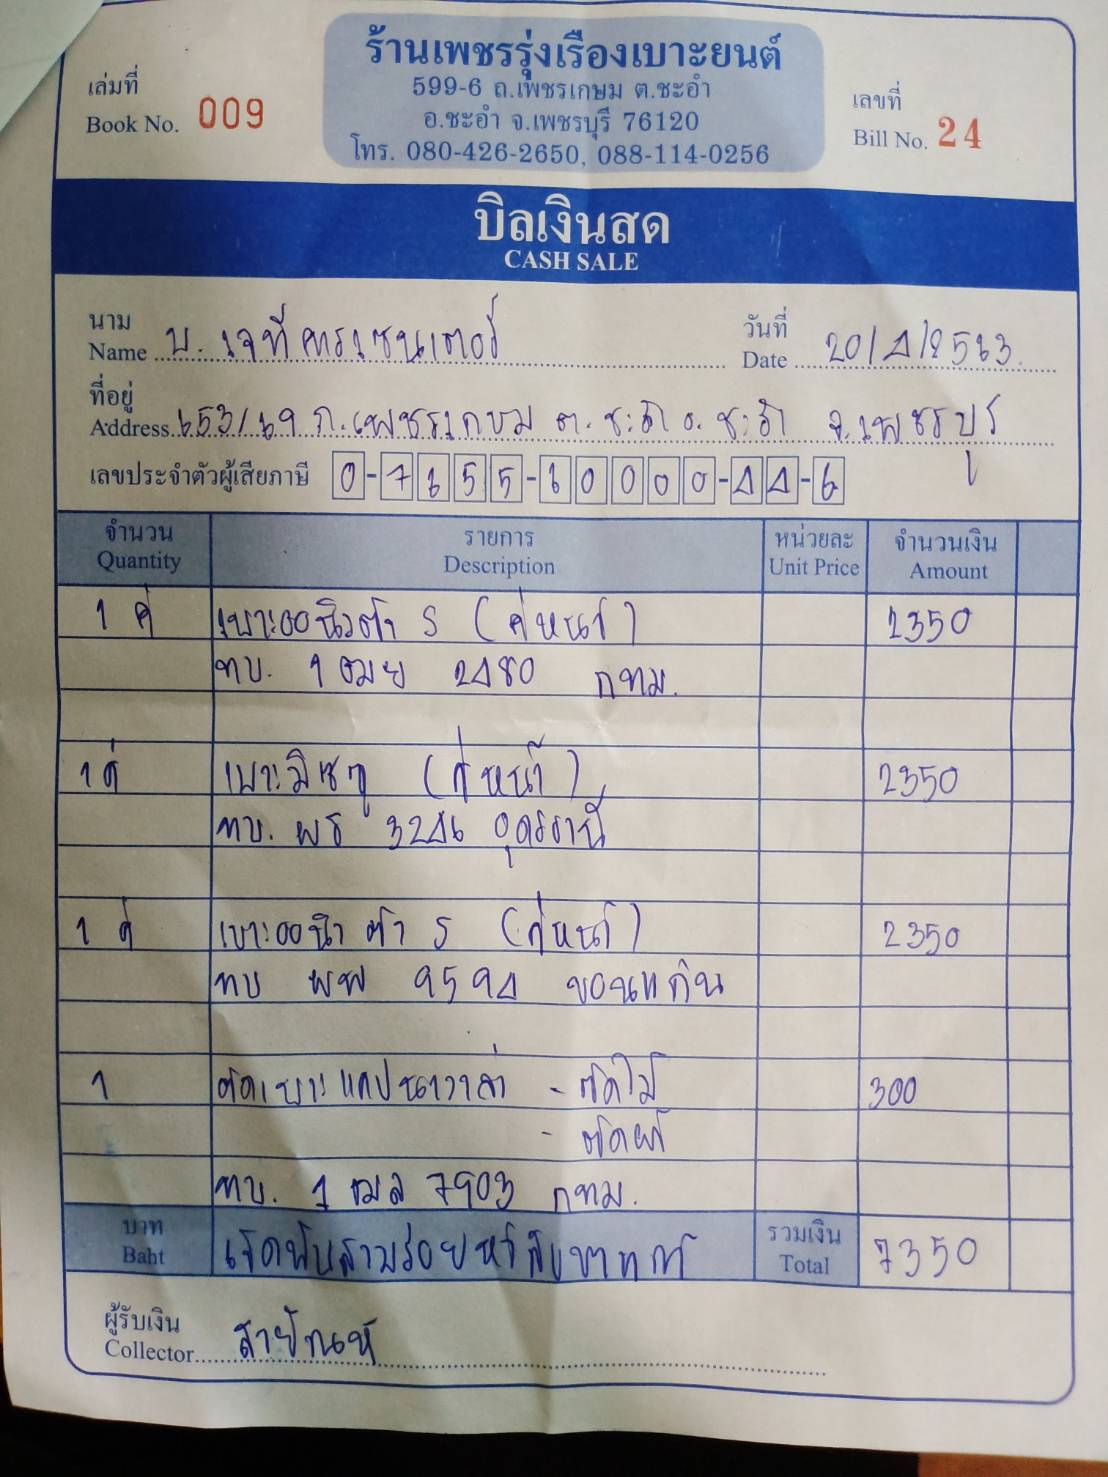 ร้านเพชรรุ่งเรืองเบาะยนต์
599-6 ถ.เพชรเกษม ต.ชะอำ
อ.ชะอำ จ.เพชรบุรี 76120
โทร. 080-426-2650, 088-114-0256
เล่มที่
Book No. 009
เลขที่
Bill No. 24
บิลเงินสด
CASH SALE
นาม
Name บ. เจที คาร์เซนเตอร์
วันที่
Date 20/4/2563
ที่อยู่
Address 653/69 ถ.เพชรเกษม ต.ชะอำ อ.ชะอำ จ.เพชรบุรี
เลขประจำตัวผู้เสียภาษี 0-7655-60000-44-6
จำนวน รายการ หน่วยละ จำนวนเงิน
Quantity Description Unit Price Amount
1 คู่ เบาะออนิวต้า S (คู่หน้า) 2350
ทบ. 1 ฒย 2480 กทม.
1 คู่ เบาะมิเซทู (คู่หน้า) 2350
ทบ. พร 3246 อุดรธานี
1 คู่ เบาะออนิวต้า S (คู่หน้า) 2350
ทบ ผพ 9594 ขอนแก่น
1 ตัดเบาะแคปนาวาร่า - ตัดไม้ 300
- ตัดผ้า
ทบ. 1 ฒล 7903 กทม.
บาท
Baht เจ็ดพันสามร้อยห้าสิบบาทถ้วน
รวมเงิน
Total 7350
ผู้รับเงิน
Collector สายัณห์